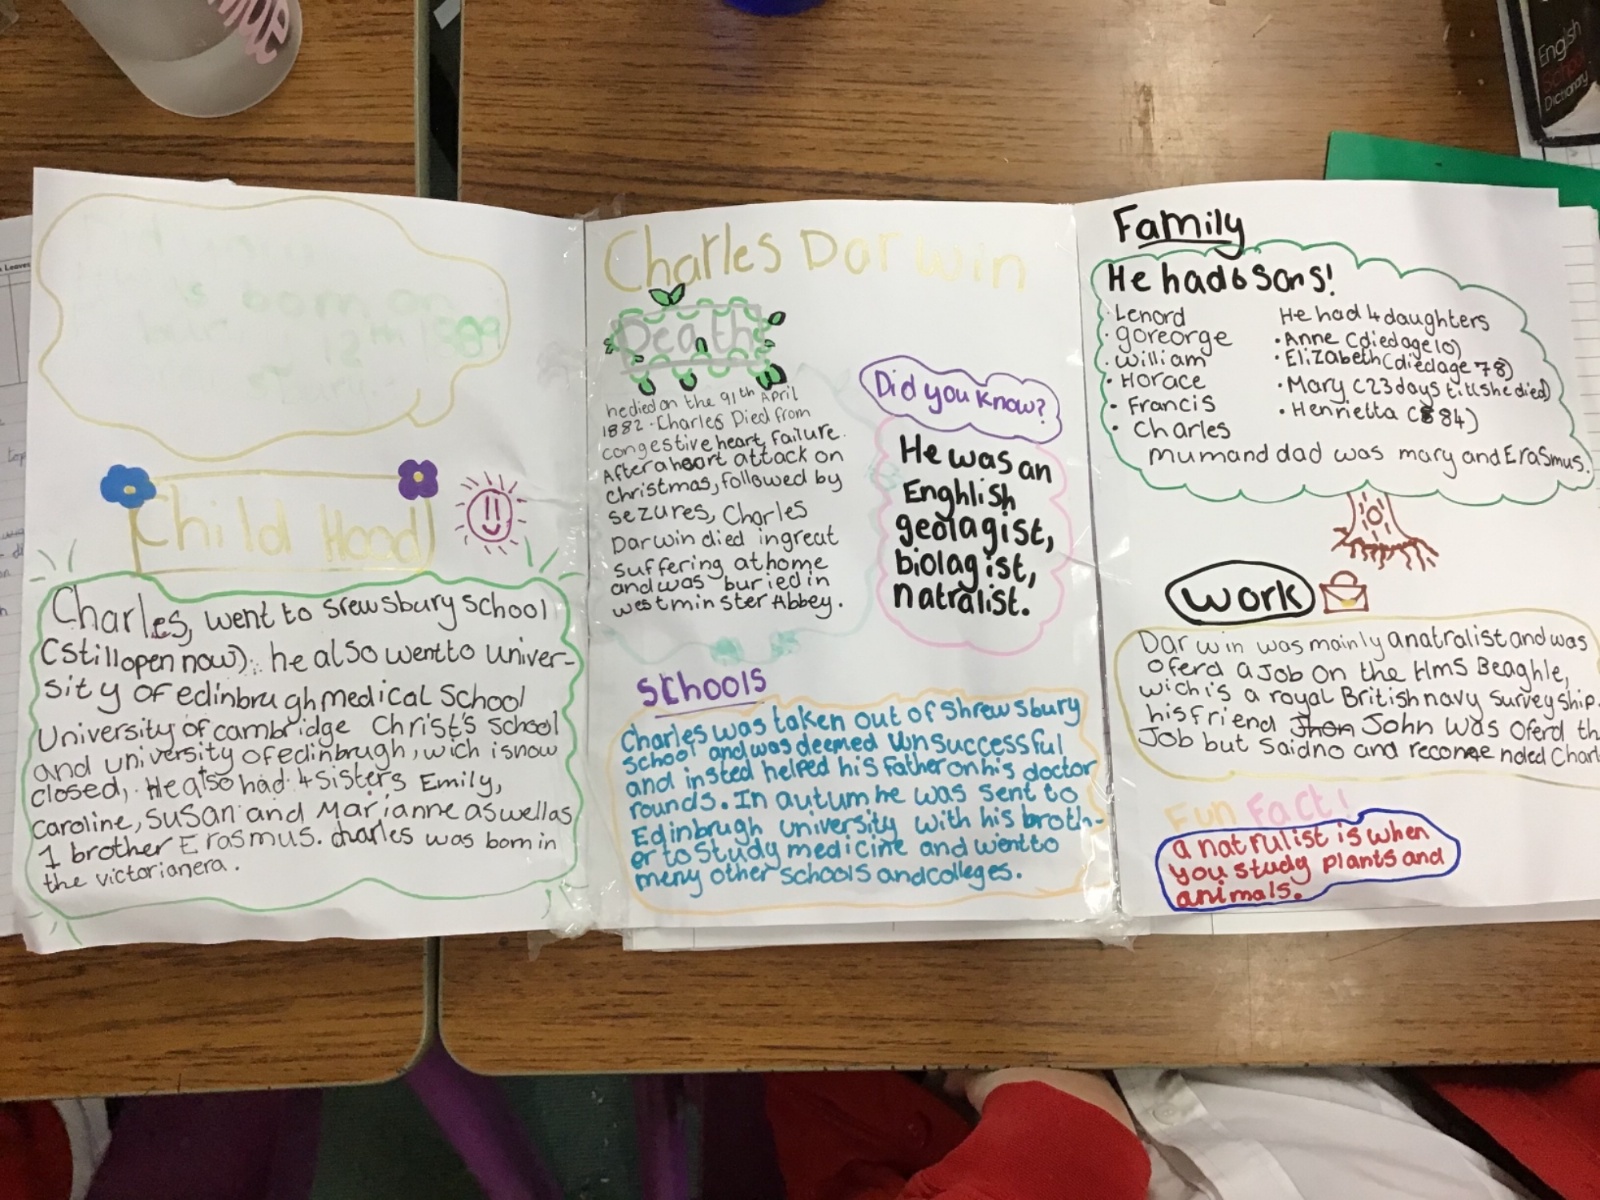 's born on
12th 1809
Child Hood
Charles, went to srewsbury school
(still open now). he also went to univer-
sity of edinbrugh medical School
University of cambridge Christ's School
and university of edinbrugh, wich is now
closed,. He also had 4 sisters Emily,
Caroline, Susan and Marianne as well as
1 brother Erasmus. charles was born in
the victorian era.
Charles Darwin
Death
he died on the 91th April
1882. Charles Died from
congestive heart failure.
After a heart attack on
christmas, followed by
sezures, Charles
Darwin died in great
suffering at home
and was buried in
westminster Abbey.
Did you know?
He was an
Enghlish
geolagist,
biolagist,
natralist.
Schools
Charles was taken out of Shrewsbury
School and was deemed Unsuccessful
and insted helped his Father on his doctor
rounds. In autum he was sent to
Edinbrugh university with his broth-
er to Study medicine and went to
meny other schools and colleges.
Family
He had 6 sons!
· Lenord
· goreorge
· william
· Horace
· Francis
· Charles
He had 4 daughters
· Anne (died age 10)
· EliZabeth (died age 78)
· Mary (23 days till she died)
· Henrietta (84)
mum and dad was mary and Erasmus.
work
Darwin was mainly a natralist and was
oferd a Job on the Hms Beaghle,
wich is a royal British navy survey ship.
his friend Jhon John was oferd th
Job but said no and recomended Charl
Fun Fact!
a natrulist is when
you study plants and
animals.
English
School
Dictionary